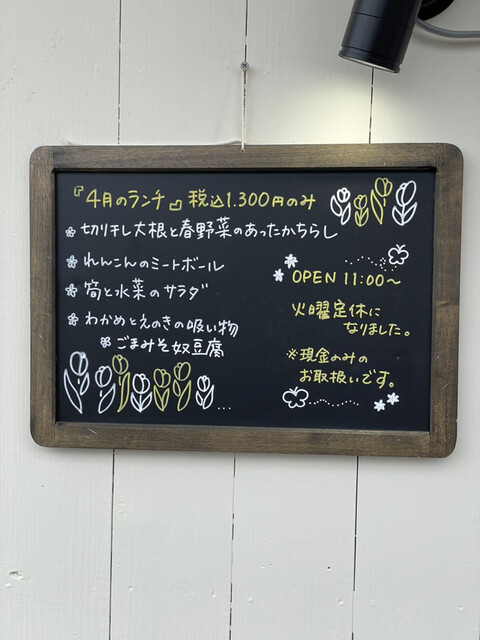 『4月のランチ』税込1.300円のみ
切り干し大根と春野菜のあったかちらし
れんこんのミートボール
筍と水菜のサラダ
わかめとえのきの吸い物
ごまみそ奴豆腐
OPEN 11:00〜
火曜定休に
なりました。
※現金のみの
お取扱いです。